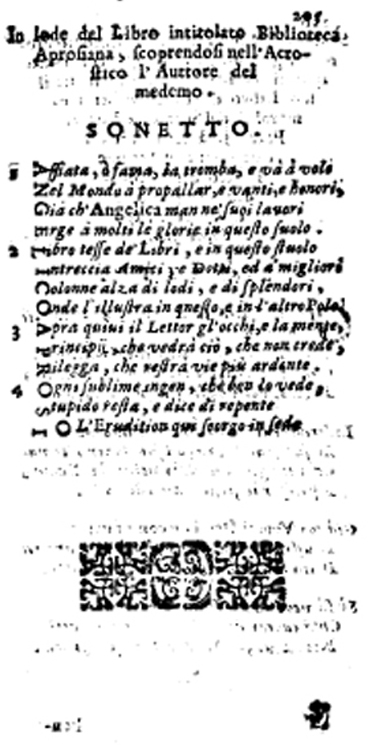 295.
In lode del Libro intitolato Biblioteca
Aprosiana, scoprendosi nell'Acro-
stico l'Auttore del
medemo.
SONETTO.
1 Affiata, ò fama, la tromba, e và à volo
Nel Mondo à propallar, e vanti, e honori,
Già ch'Angelica man ne' suoi lauori
Erge à molti le glorie in questo suolo.
2 Libro tesse de' Libri, e in questo stuolo
Intreccia Amici, e Dotti, ed à migliori
Colonne alza di lodi, e di splendori,
Onde l'illustra in questo, e in l'altro Polo.
3 Apra quiui il Lettor gl'occhi, e la mente,
Principij, che vedrà ciò, che non crede,
Rilegga, che restrà vie più ardente.
4 Ogni sublime ingen, che ben lo vede,
Stupido resta, e dice di repente
IO L'Erudition qui scorgo in sede